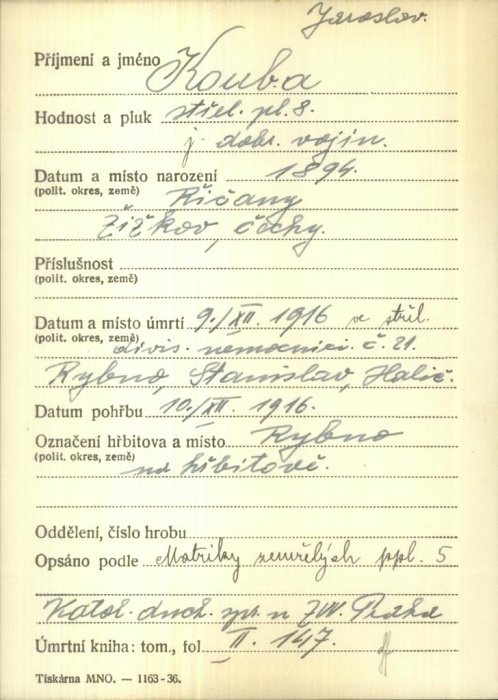 Jaroslav.
Příjmení a jméno Kouba
Hodnost a pluk střel. pl. 8.
j. dobr. vojín.
Datum a místo narození 1894.
(polit. okres, země) Říčany
Žižkov, Čechy.
Příslušnost
(polit. okres, země)
Datum a místo úmrtí 9./XII. 1916 ve střel.
(polit. okres, země) divis. nemocnici č. 21.
Rybno, Stanislav, Halič.
Datum pohřbu 10./XII. 1916.
Označení hřbitova a místo Rybno
(polit. okres, země) na hřbitově.
Oddělení, číslo hrobu
Opsáno podle Matriky zemřelých ppl. 5
Katol. duch. spr. u ZVV. Praha
Úmrtní kniha: tom., fol II. 147.
Tiskárna MNO. — 1163-36.